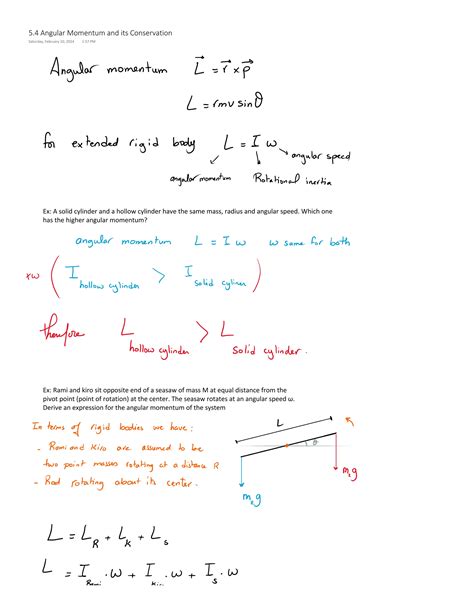 5.4 Angular Momentum and its Conservation
Saturday, February 10, 2024 1:57 PM
Angular momentum L⃗ = r⃗ × p⃗
L = rmv sinθ
for extended rigid body L = I ω
angular speed
angular momentum Rotational inertia
Ex: A solid cylinder and a hollow cylinder have the same mass, radius and angular speed. Which one
has the higher angular momentum?
angular momentum L = I ω ω same for both
xω ( I hollow cylinder > I solid cyliner )
therefore L hollow cylinder > L solid cylinder.
Ex: Rami and kiro sit opposite end of a seasaw of mass M at equal distance from the
pivot point (point of rotation) at the center. The seasaw rotates at an angular speed ω.
Derive an expression for the angular momentum of the system
In terms of rigid bodies we have:
- Rami and Kiro are assumed to be
two point masses rotating at a distance R
- Rod rotating about its center.
L
θ
g
g
L = L_R + L_k + L_s
L = I_Rami · ω + I_kiro · ω + I_s · ω